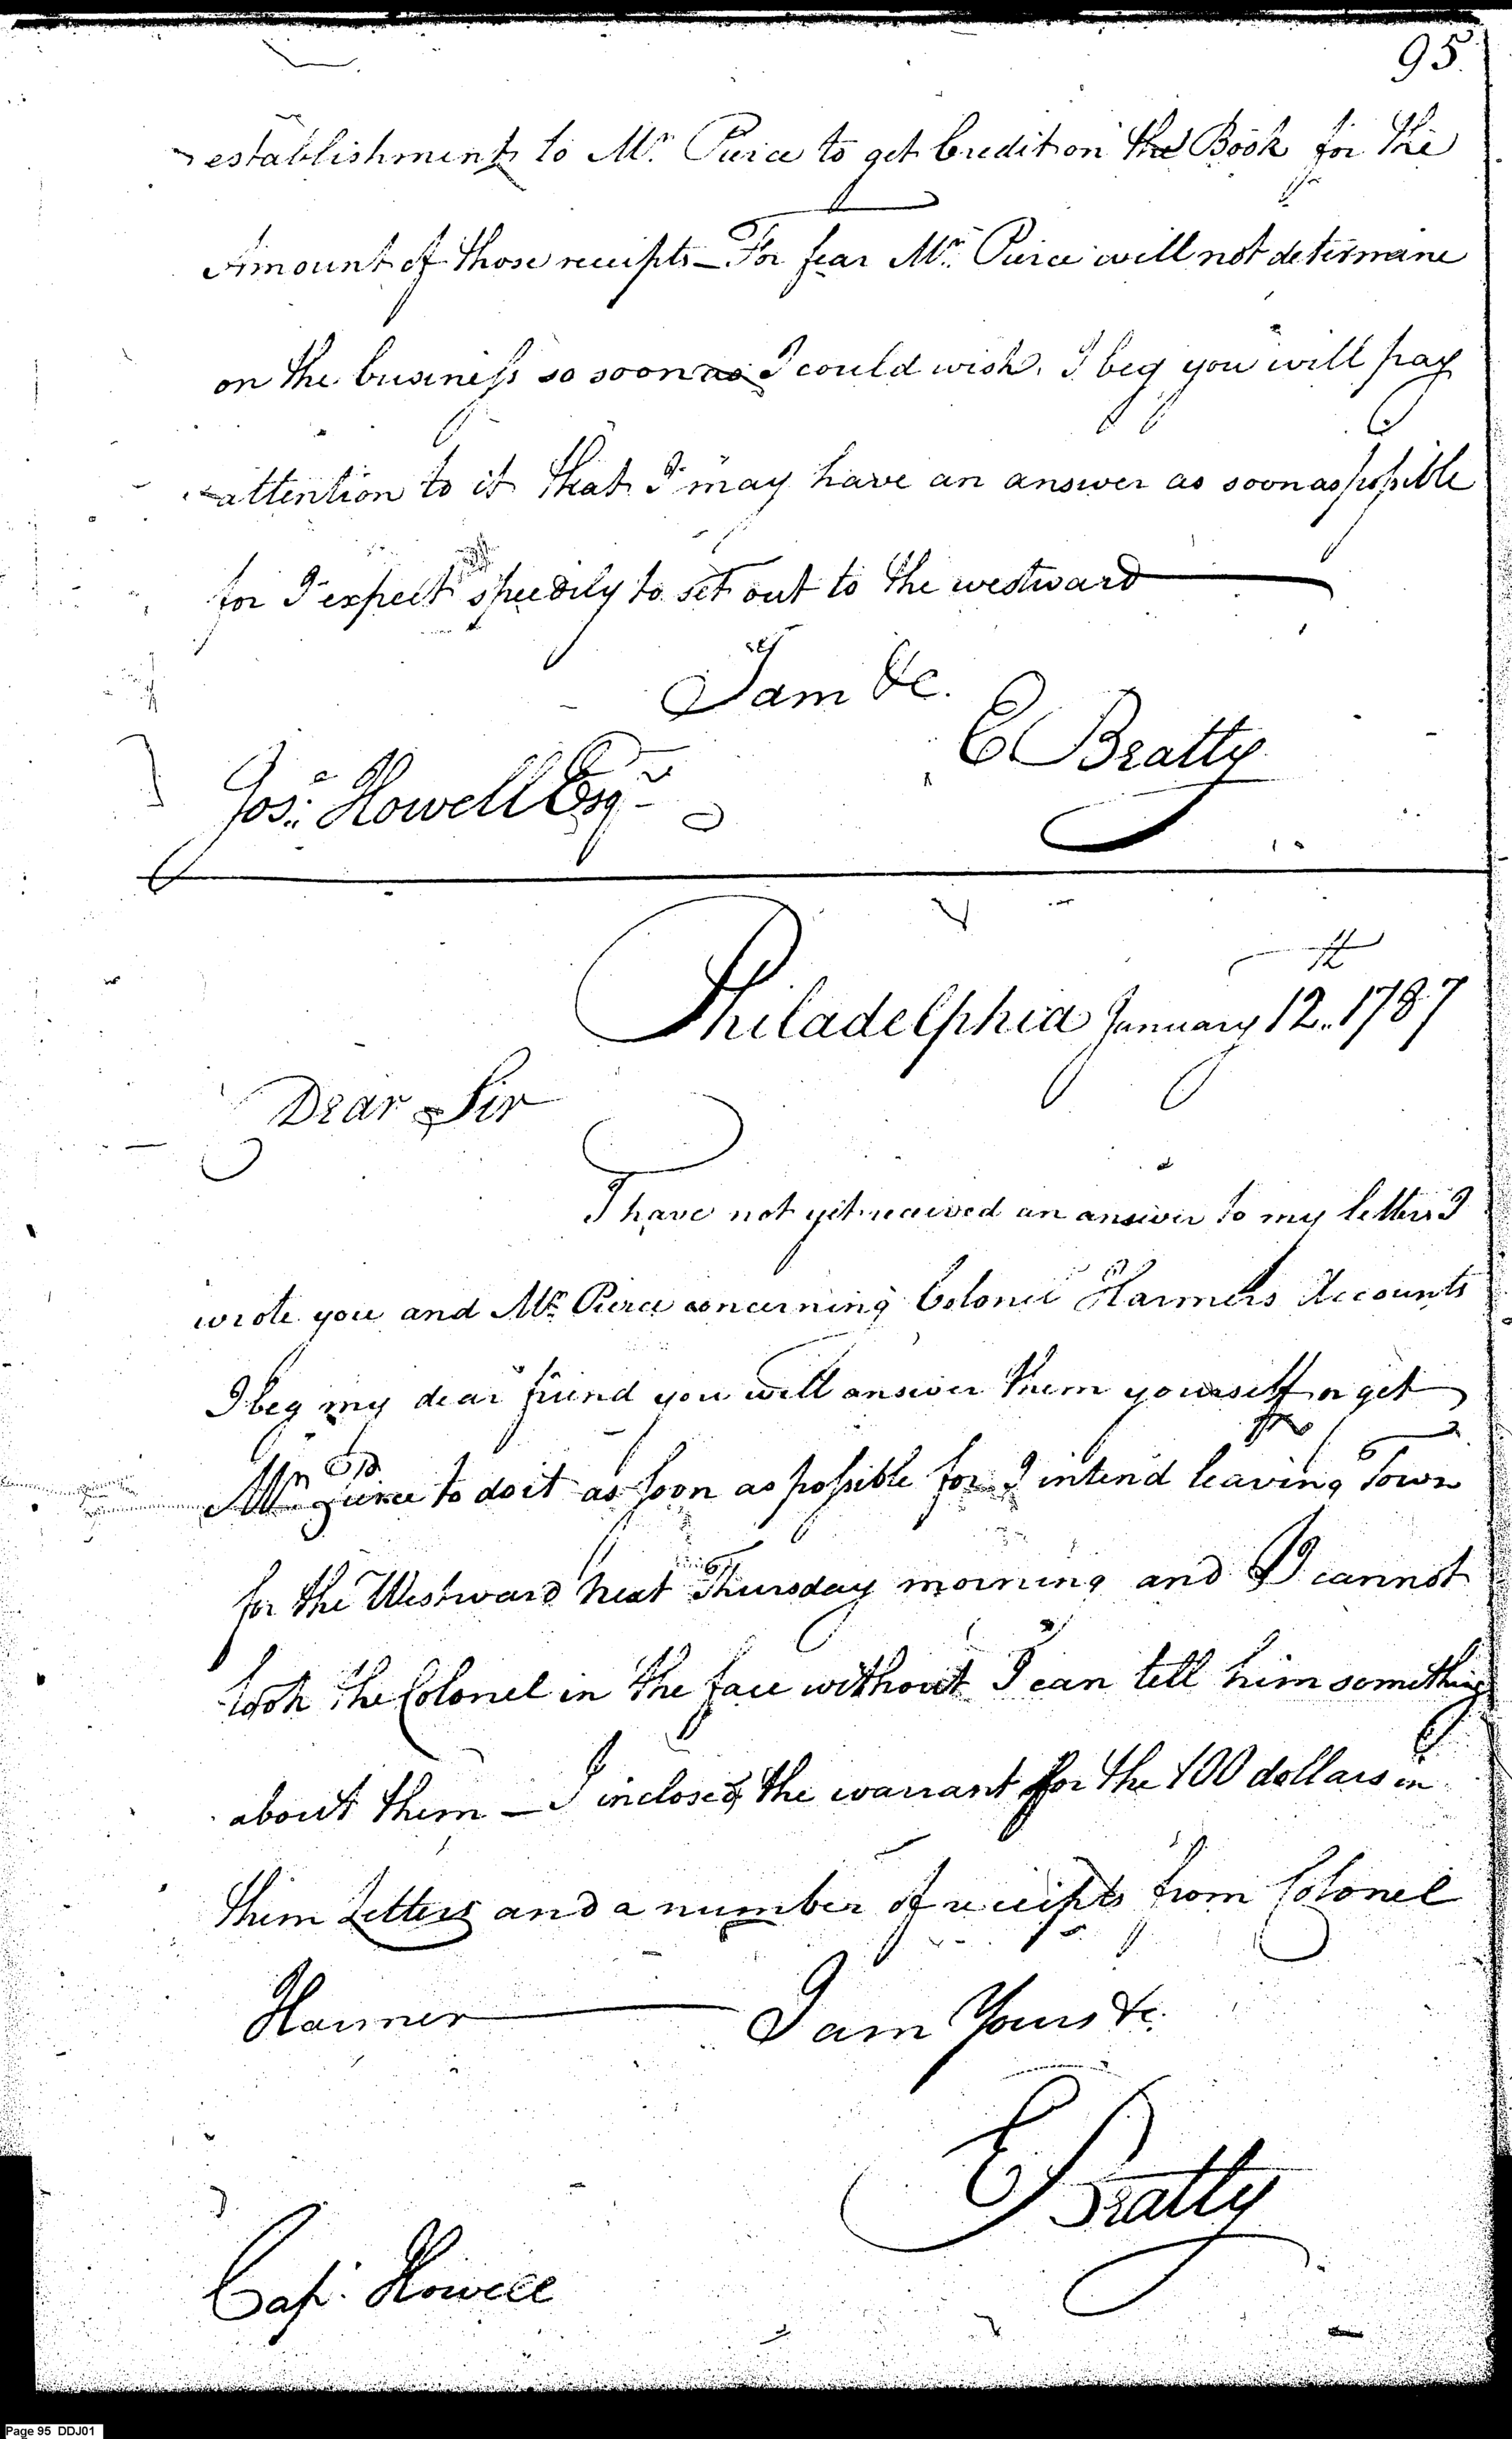 95.
establishment to Mr. Pierce to get Credit on the Book for the
Amount of those receipts — For fear Mr. Pierce will not determine
on the business so soon as I could wish. I beg you will pay
attention to it that I may have an answer as soon as possible
for I expect speedily to set out to the westward
I am &c.
E Beatty
Jos: Howell Esqr
Philadelphia January 12th 1787
Dear Sir
I have not yet received an answer to my letters I
wrote you and Mr. Pierce concerning Colonel Harmers Accounts
I beg my dear friend you will answer them yourself or get
Mr Pierce to do it as soon as possible for I intend leaving Town
for the Westward next Thursday morning and I cannot
look the Colonel in the face without I can tell him something
about them — I inclosed the warrant for the 100 dollars in
them Letters and a number of receipts from Colonel
Harmer I am Yours &c.
E Beatty
Cap. Howell
Page 95 DDJ01